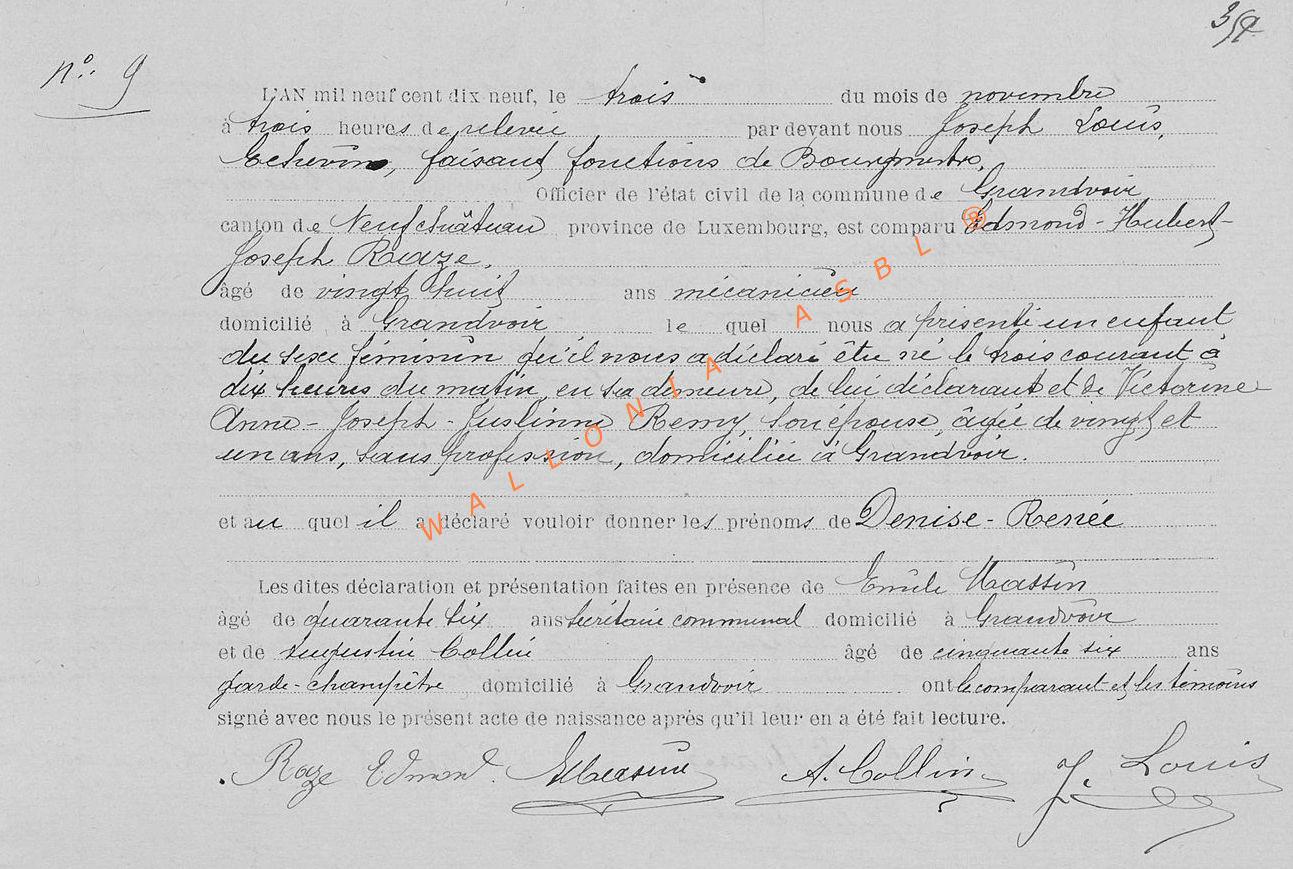 n°. 9
L'AN mil neuf cent dix neuf, le trois du mois de novembre
à trois heures de relevée par devant nous Joseph Louis,
Echevin, faisant fonctions de Bourgmestre,
Officier de l'état civil de la commune de Grandvoir
canton de Neufchâteau province de Luxembourg, est comparu Edmond-Hubert-
Joseph Raze,
âgé de vingt huit ans mécanicien
domicilié à Grandvoir le quel nous a présenté un enfant
du sexe féminin qu'il nous a déclaré être né le trois courant à
dix heures du matin, en sa demeure, de lui déclarant et de Victorine
Anne-Joseph-Justinne Remy, son épouse, âgée de vingt et
un ans, sans profession, domiciliée à Grandvoir.
et au quel il a déclaré vouloir donner les prénoms de Denise-Renée
Les dites déclaration et présentation faites en présence de Emile Massin
âgé de quarante six ans secrétaire communal domicilié à Grandvoir
et de Augustin Collin âgé de cinquante six ans
garde-champêtre domicilié à Grandvoir ont le comparant et les témoins
signé avec nous le présent acte de naissance après qu'il leur en a été fait lecture.
Raze Edmond. EMassin A. Collin J. Louis
WALLONIA ASBL ®